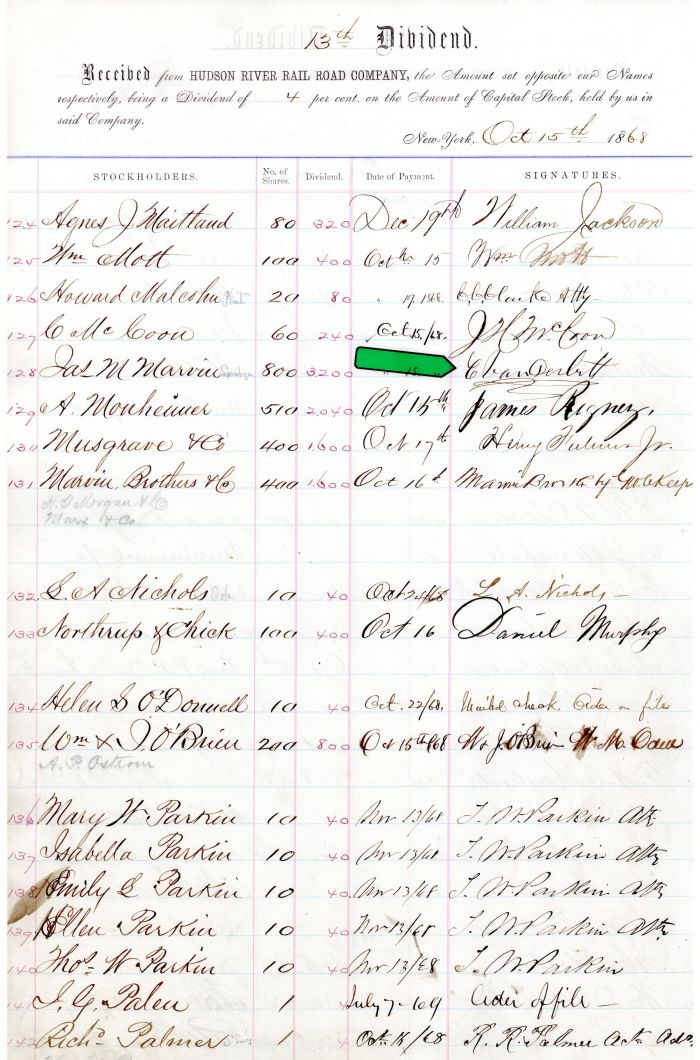 13th Dividend.
Received from HUDSON RIVER RAIL ROAD COMPANY, the Amount set opposite our Names
respectively, being a Dividend of 4 per cent. on the Amount of Capital Stock, held by us in
said Company.
New-York, Oct 15th 1868
STOCKHOLDERS. No. of Shares. Dividend. Date of Payment. SIGNATURES.
124 Agnes J Maitland 80 320 Dec 19th William Jackson
125 Wm Mott 100 400 Octbr 15 Wm Mott
126 Howard Malcolm 20 80 " 17. 1868. C.C. Clarke Atty
127 C McCoon 60 240 Oct 15/68. J H McCoon
128 Jas M Marvin 800 3,200 " 15 C Vanderbilt
129 A. Monheimer 510 2,040 Oct 15th James Rigney.
130 Musgrave & Co 400 1,600 Oct 17th Henry Jr.
131 Marvin Brothers & Co 400 1,600 Oct 16th Marvin Bros & Co by
H. T. Morgan & Co
Marx & Co.
132 L A Nichols 10 40 Oct 24/68 L. A. Nichols
133 Northrup & Chick 100 400 Oct 16 Daniel Murphy
134 Helen S O'Donnell 10 40 Oct. 22/68. Mailed check Order on file
135 Wm & J. O'Brien 200 800 Oct 15th/68 Wm J. O'Brien W. M.
A. P. Ostrom
136 Mary W Parkin 10 40 Nov 13/68 T. W. Parkin Atty
137 Isabella Parkin 10 40 Nov 13/68 T. W. Parkin Atty
138 Emily E Parkin 10 40 Nov 13/68 T. W. Parkin Atty
139 Ellen Parkin 10 40 Nov 13/68 T. W. Parkin Atty
140 Thos W Parkin 10 40 Nov 13/68 T. W. Parkin
141 J. G. Palen 1 4 July 7-69 Order of file
142 Richd Palmer 1 4 Oct. 15/68 R. R. Palmer